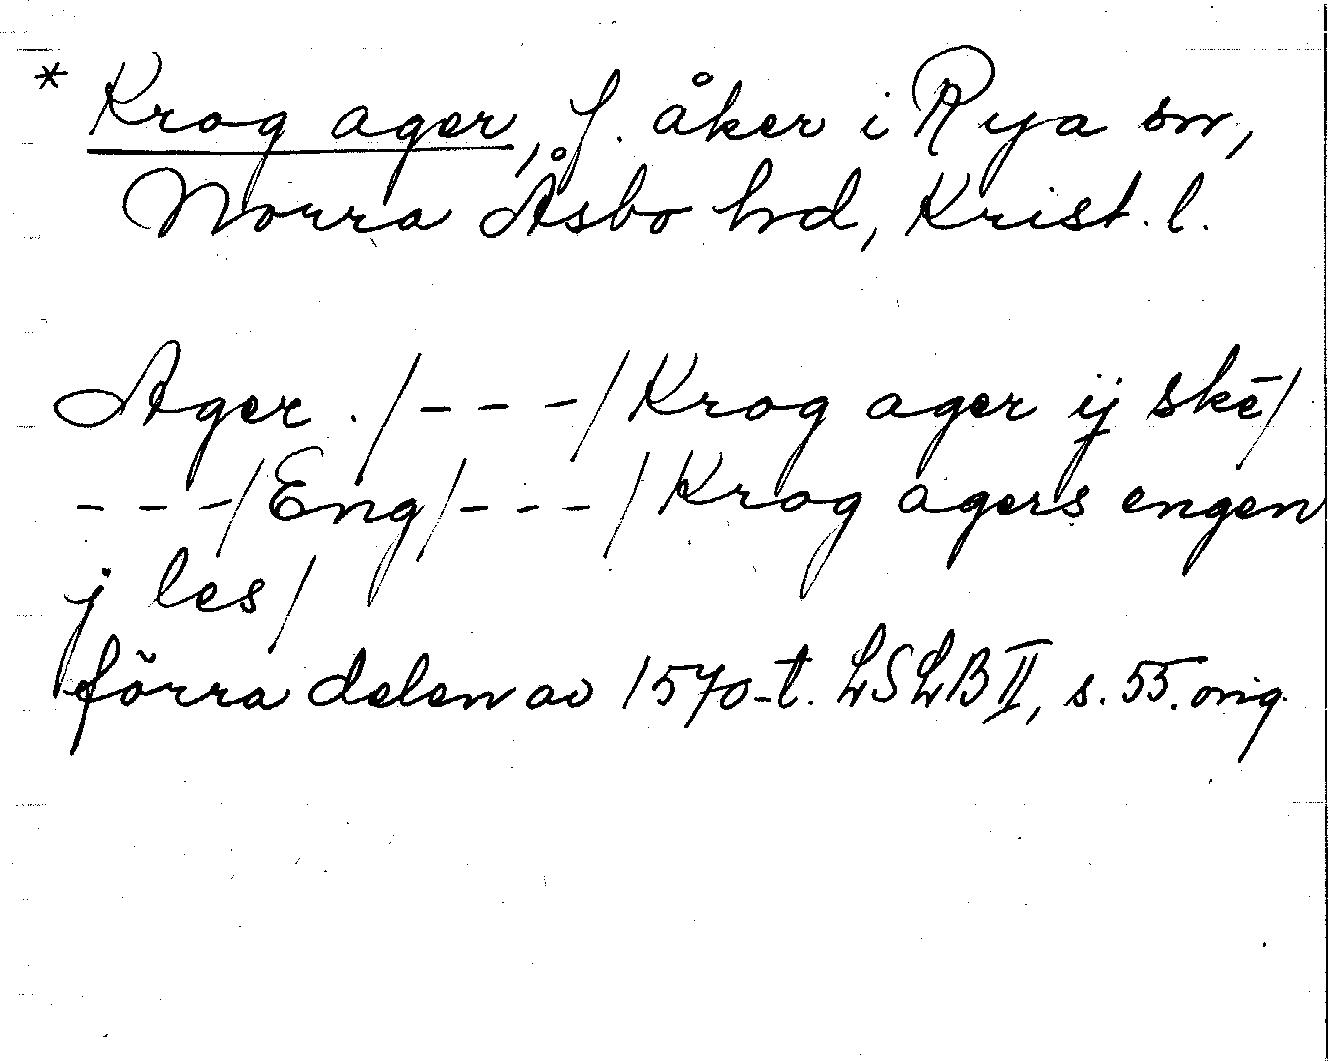 * Krog ager, f. åker i Rya sn,
Norra Åsbo hd, Krist. l.
Ager . /---/ Krog ager ij skē/
---/Eng/---/ Krog agers engen
j les/
förra delen av 1570-t. LSLB II, s. 55. orig.